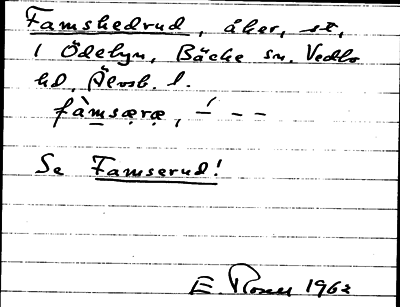 Famshedrud, åker, st,
i Ödebyn, Bäcke sn. Vedbo
hd, Älvsb. l.
fàmsæræ, –́ – –
Se Famserud!
E. 1962